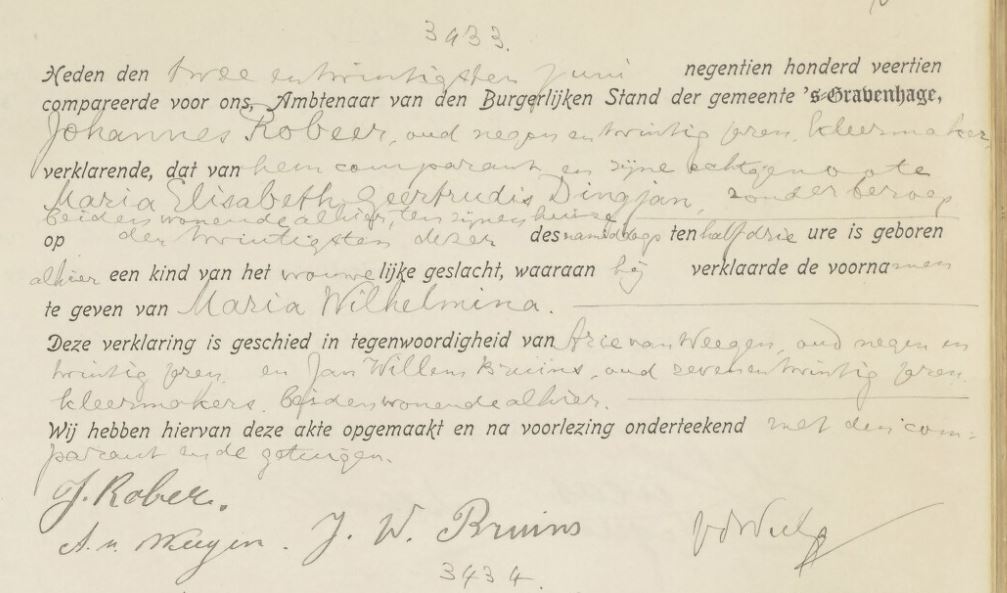 3433.
Heden den twee en twintigsten Juni negentien honderd veertien
compareerde voor ons, Ambtenaar van den Burgerlijken Stand der gemeente 's-Gravenhage,
Johannes Robeer, oud negen en twintig jren, kleermaker,
verklarende, dat van hem comparant en zijne echtgenoote
Maria Elisabeth Geertrudis Dingjan, zonder beroep
beiden wonende alhier, ten zijnen huize
op den twintigsten dezer des namiddags ten half drie ure is geboren
alhier een kind van het vrouwelijke geslacht, waaraan hij verklaarde de voornamen
te geven van Maria Wilhelmina.
Deze verklaring is geschied in tegenwoordigheid van Arie van Weegen, oud negen en
twintig jren en Jan Willem Bruins, oud zeven en twintig jren
kleermakers, beiden wonende alhier.
Wij hebben hiervan deze akte opgemaakt en na voorlezing onderteekend met den com-
parant en de getuigen.
J. Robeer.
A. v. Weegen. J. W. Bruins
3434.